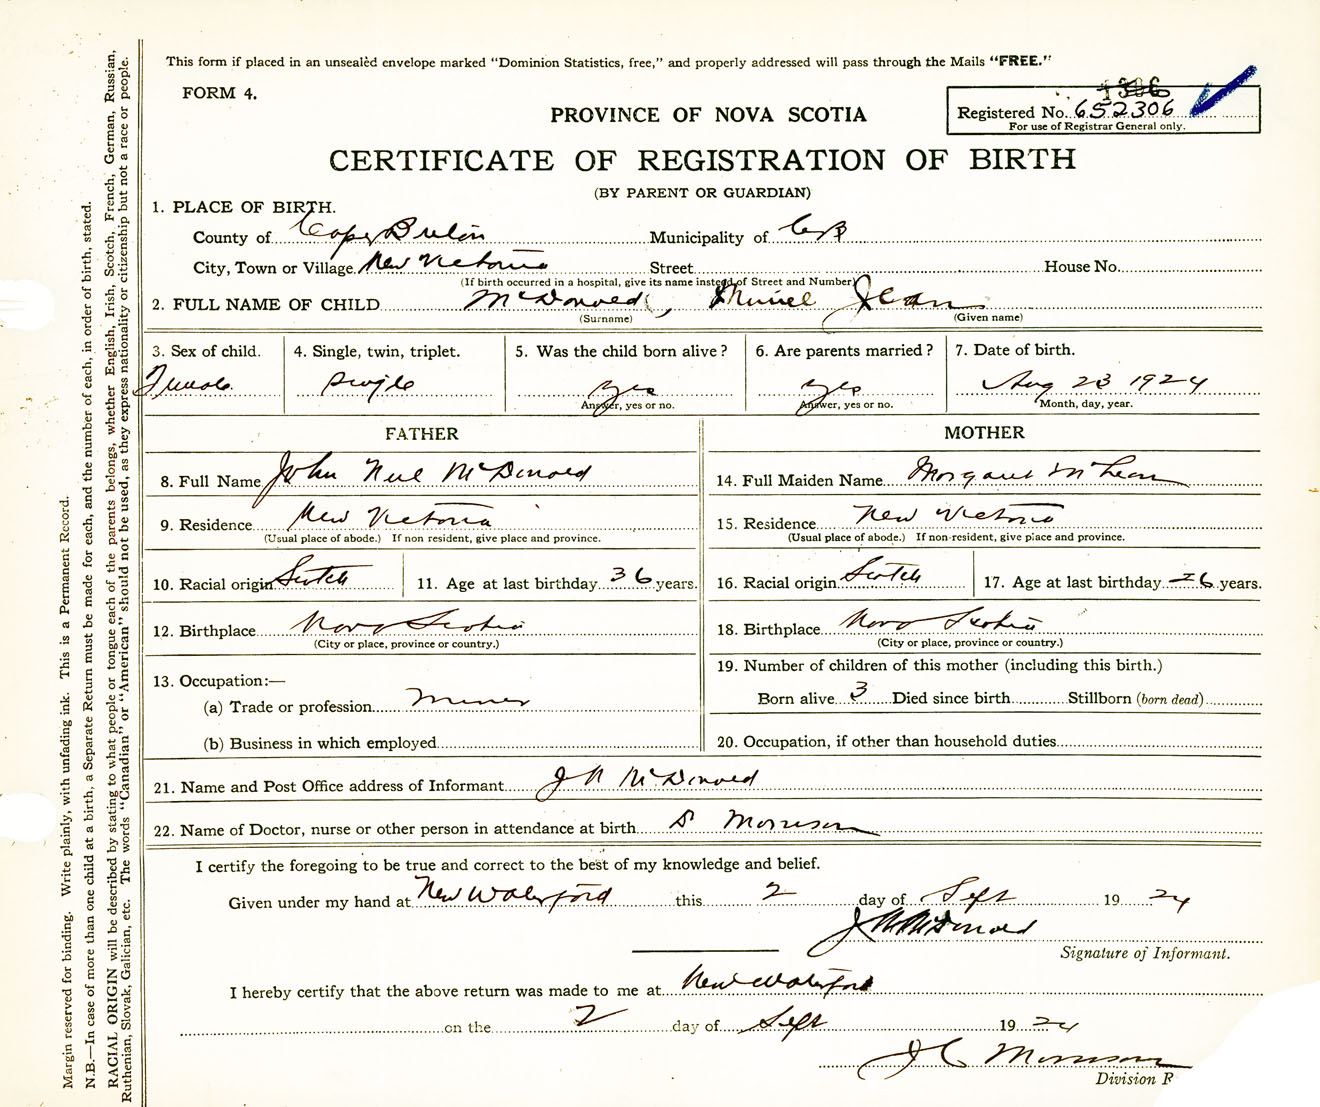 This form if placed in an unsealed envelope marked "Dominion Statistics, free," and properly addressed will pass through the Mails "FREE."
FORM 4.
PROVINCE OF NOVA SCOTIA
Registered No. 652306
For use of Registrar General only.
CERTIFICATE OF REGISTRATION OF BIRTH
(BY PARENT OR GUARDIAN)
1. PLACE OF BIRTH.
County of Cape Breton Municipality of CB
City, Town or Village New Victoria Street House No.
(If birth occurred in a hospital, give its name instead of Street and Number)
2. FULL NAME OF CHILD McDonald, Muriel Jean
(Surname) (Given name)
3. Sex of child. 4. Single, twin, triplet. 5. Was the child born alive? 6. Are parents married? 7. Date of birth.
Female single yes yes Aug 23 1924
Answer, yes or no. Answer, yes or no. Month, day, year.
FATHER MOTHER
8. Full Name John Neil McDonald 14. Full Maiden Name Margaret McLean
9. Residence New Victoria 15. Residence New Victoria
(Usual place of abode.) If non resident, give place and province. (Usual place of abode.) If non-resident, give place and province.
10. Racial origin Scotch 11. Age at last birthday 36 years. 16. Racial origin Scotch 17. Age at last birthday 26 years.
12. Birthplace Nova Scotia 18. Birthplace Nova Scotia
(City or place, province or country.) (City or place, province or country.)
19. Number of children of this mother (including this birth.)
13. Occupation:—
(a) Trade or profession Miner Born alive 3 Died since birth Stillborn (born dead)
(b) Business in which employed 20. Occupation, if other than household duties
21. Name and Post Office address of Informant J N McDonald
22. Name of Doctor, nurse or other person in attendance at birth Dr Morrison
I certify the foregoing to be true and correct to the best of my knowledge and belief.
Given under my hand at New Waterford this 2 day of Sept 1924
J N McDonald
Signature of Informant.
I hereby certify that the above return was made to me at New Waterford
on the 2 day of Sept 1924
J C Morrison
Division R
Margin reserved for binding. Write plainly, with unfading ink. This is a Permanent Record.
N.B.—In case of more than one child at a birth, a Separate Return must be made for each, and the number of each, in order of birth, stated.
RACIAL ORIGIN will be described by stating to what people or tongue each of the parents belongs, whether English, Irish, Scotch, French, German, Russian,
Ruthenian, Slovak, Galician, etc. The words "Canadian" or "American" should not be used, as they express nationality or citizenship but not a race or people.